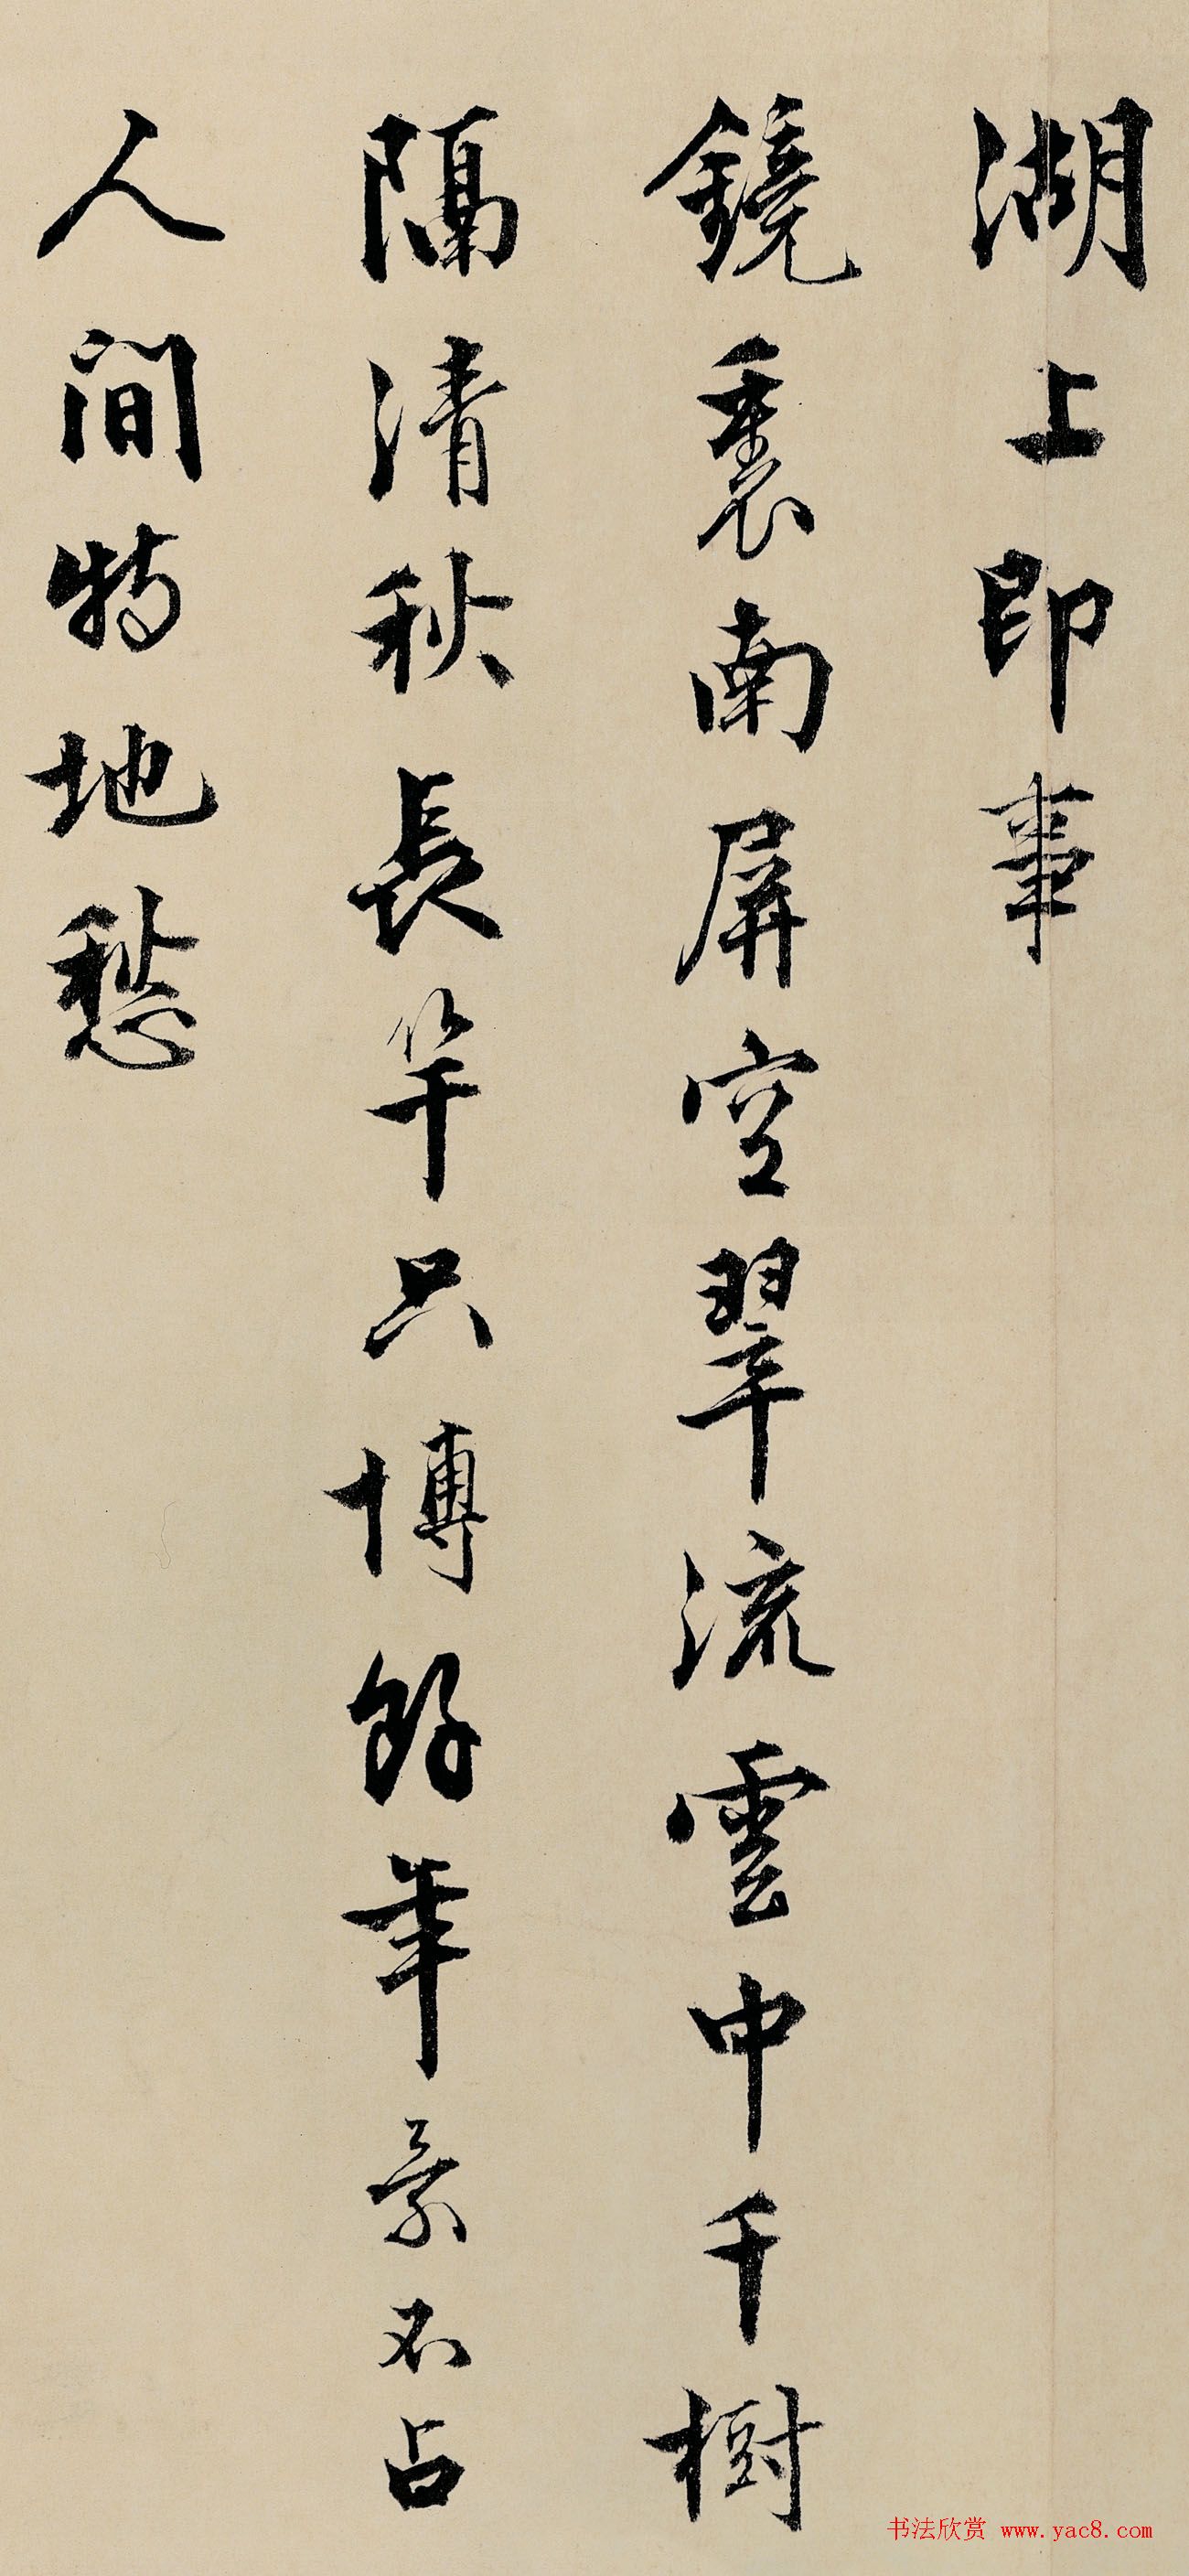 湖上即事
鏡裏南屏空翠流雲中千樹
隔清秋長竿只博餘年景不占
人間特地愁
书法欣赏 www.yac8.com